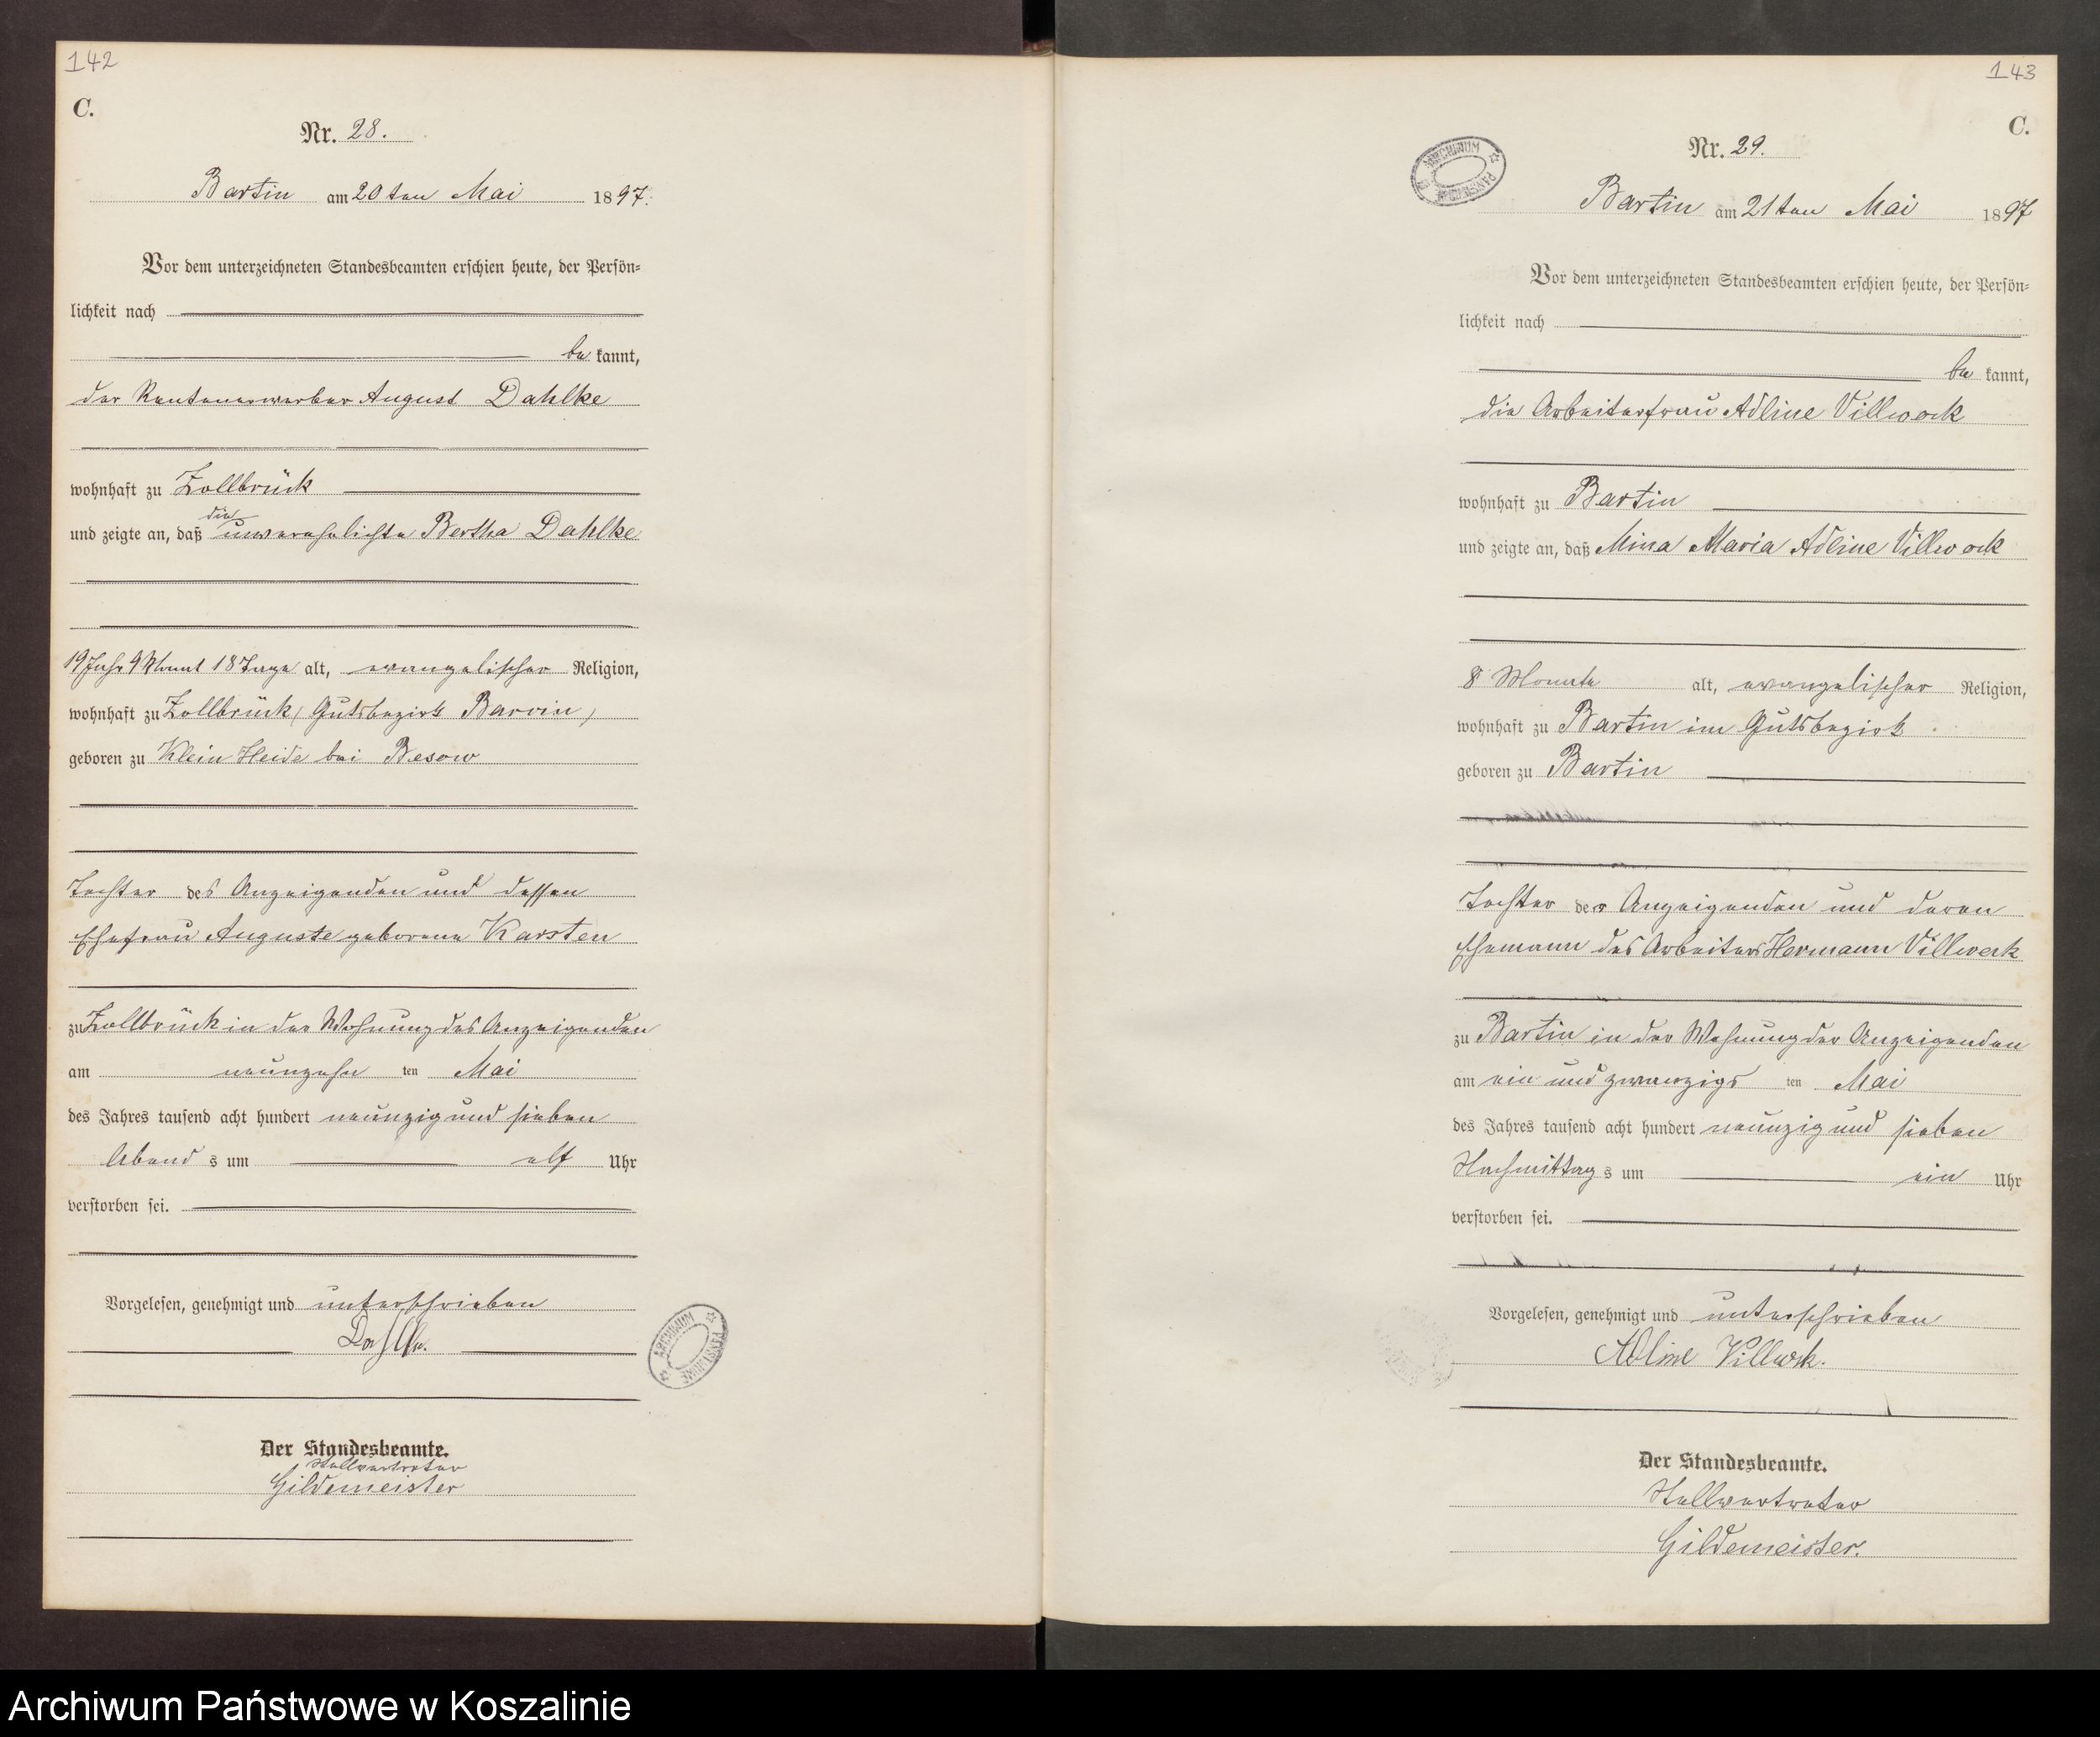 142
C.
Nr. 28.
Bartin am 20ten Mai 1897.
Vor dem unterzeichneten Standesbeamten erschien heute, der Persön-
lichkeit nach
be kannt,
der Rentenerwerber August Dahlke
wohnhaft zu Zollbrück
die
und zeigte an, daß unverehelichte Bertha Dahlke
19 Jahr 9 Monat 18 Tage alt, evangelischer Religion,
wohnhaft zu Zollbrück, Gutsbezirk Barvin,
geboren zu Klein Heide bei Besow
Tochter des Anzeigenden und dessen
Ehefrau Auguste geborene Karsten
zu Zollbrück in der Wohnung des Anzeigenden
am neunzehn ten Mai
des Jahres tausend acht hundert neunzig und sieben
Abend s um elf Uhr
verstorben sei.
Vorgelesen, genehmigt und unterschrieben
Dahlke.
Der Standesbeamte.
Stellvertreter
Gildemeister
ARCHIWUM PAŃSTWOWE
143
C.
ARCHIWUM PAŃSTWOWE
Nr. 29.
Bartin am 21ten Mai 1897
Vor dem unterzeichneten Standesbeamten erschien heute, der Persön-
lichkeit nach
be kannt,
die Arbeiterfrau Adline Villwock
wohnhaft zu Bartin
und zeigte an, daß Mina Maria Adline Villwock
8 Monate alt, evangelischer Religion,
wohnhaft zu Bartin im Gutsbezirk
geboren zu Bartin
Tochter der Anzeigenden und deren
Ehemann des Arbeiters Hermann Villwock
zu Bartin in der Wohnung der Anzeigenden
am ein und zwanzigs ten Mai
des Jahres tausend acht hundert neunzig und sieben
Nachmittag s um ein Uhr
verstorben sei.
Vorgelesen, genehmigt und unterschrieben
Adline Villwok.
Der Standesbeamte.
Stellvertreter
Gildemeister.
Archiwum Państwowe w Koszalinie